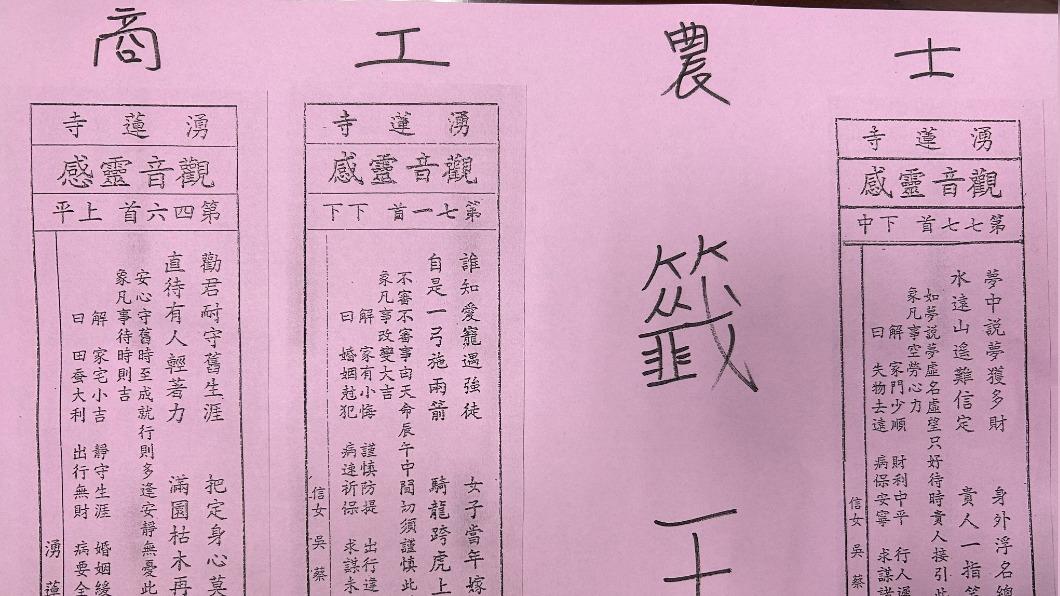 士
農
工
商
湧蓮寺
觀音靈感
第七七首 下中
夢中說夢獲多財 身外浮名總
水遠山遙難信定 貴人一指笑
如夢說夢虛名虛望只好待時貴人接引此
象凡事空勞心力
解 家門少順 財利中平 行人遲
曰 失物去遠 病保安寧 求謀
信女 吳 蔡
籤
湧蓮寺
觀音靈感
第七一首 下下
誰知愛寵遇強徒 女子當年嫁
自是一弓施兩箭 騎龍跨虎上
不審不審事由天命辰午中間切須謹慎此
象凡事改變大吉
解 家有小悔 謹慎防提 出行
曰 婚姻尅犯 病速祈保 求謀未
信女 吳 蔡
湧蓮寺
觀音靈感
第四六首 上平
勸君耐守舊生涯 把定身心莫
直待有人輕著力 滿園枯木再
安心守舊時至成就行則多逢安靜無憂此
象凡事待時則吉
解 家宅小吉 靜守生涯 婚姻緩
曰 田蚕大利 出行無財 病要全
湧 蓮